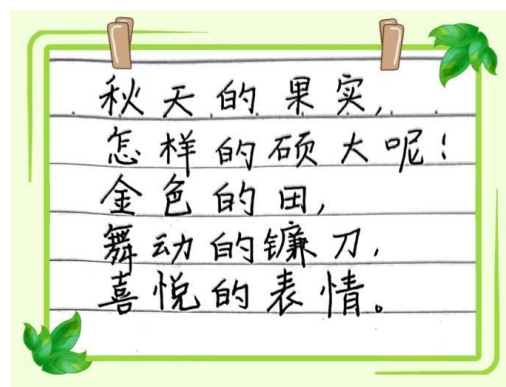 秋天的果实,
怎样的硕大呢!
金色的田,
舞动的镰刀,
喜悦的表情。